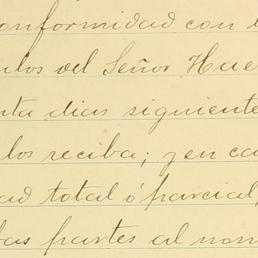 onformidad con l
ulos del Señor Hue
nta dias siguiente
los reciba; y en ca
ad total ó parcial,
bas partes al nom